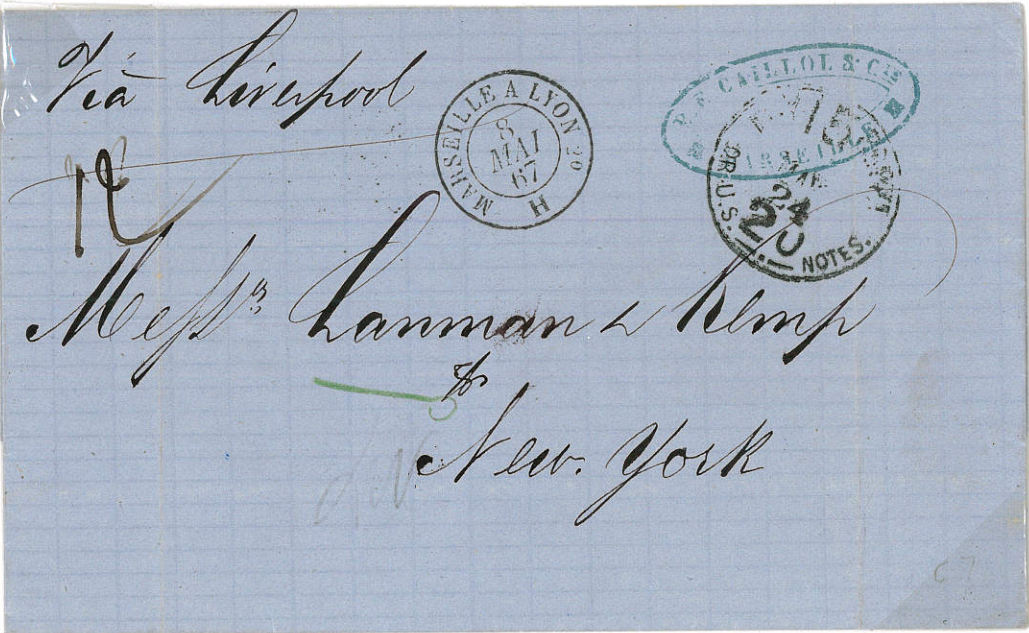 Viâ Liverpool
MARSEILLE A LYON 2°
8
MAI
67
H
CAILLOL & Cie
MARSEILLE
24
20
OR U.S.
NOTES.
12
Messrs Lanman & Kemp
New. York
67